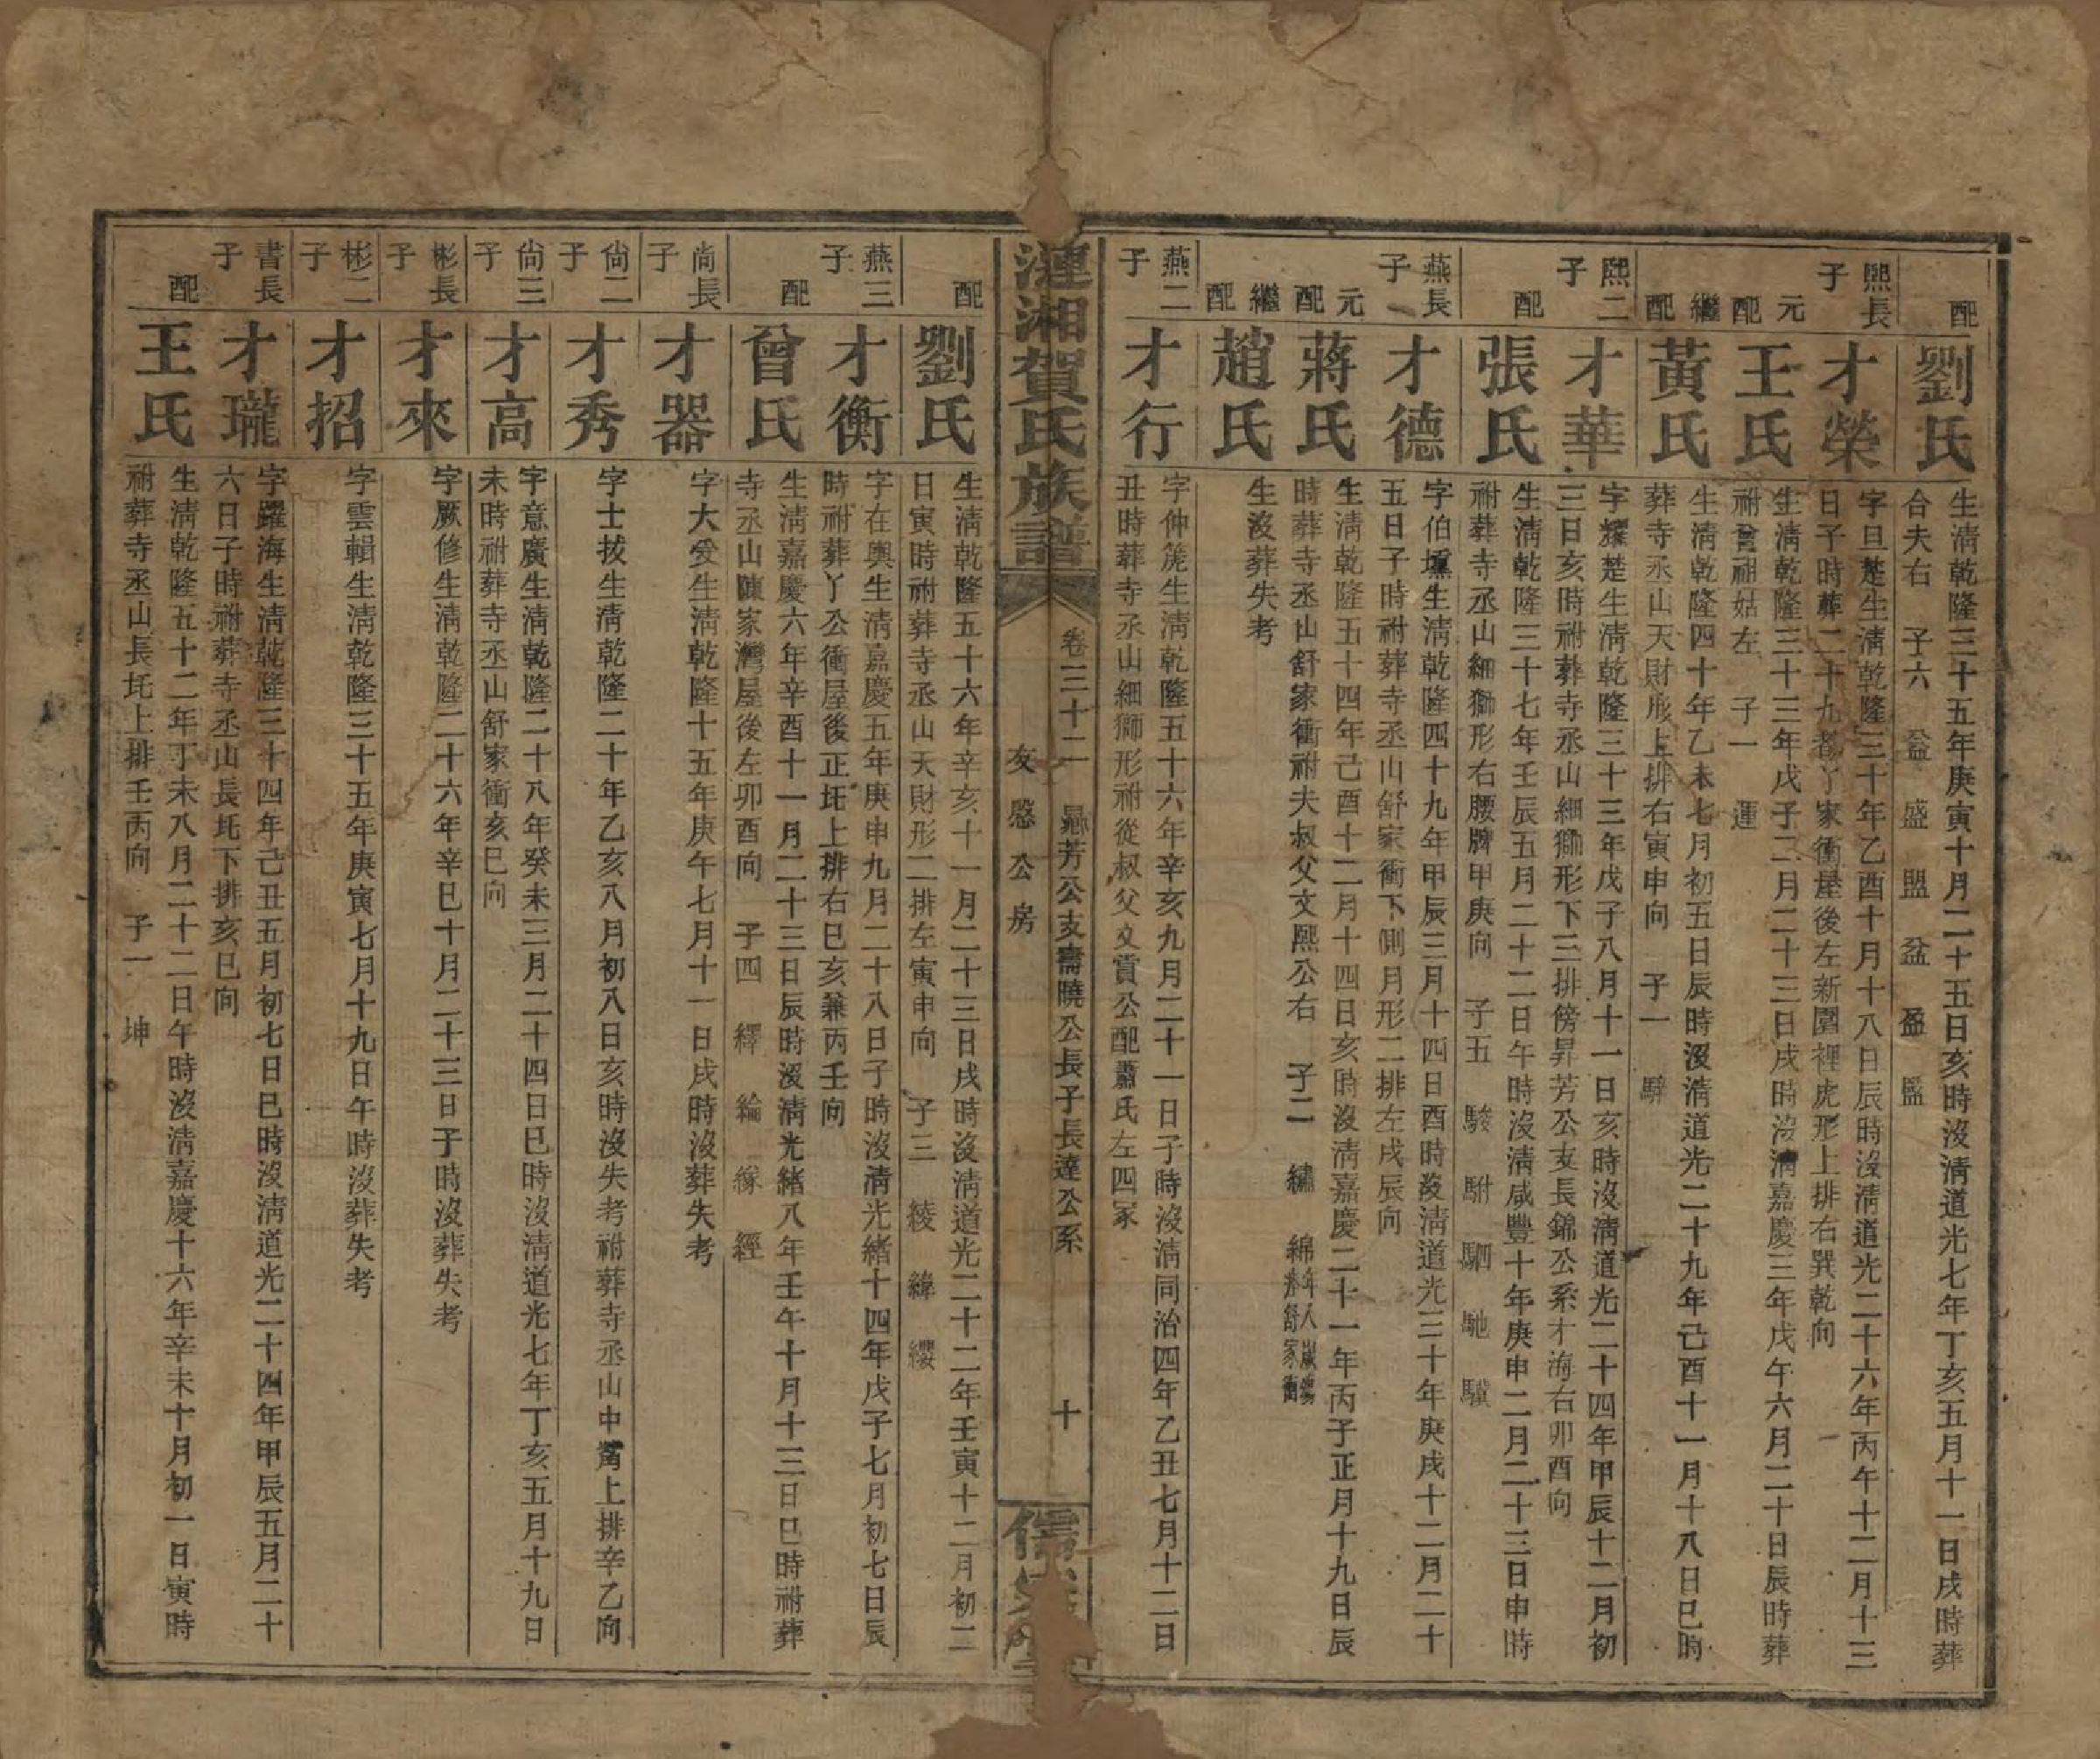 配
劉氏
生淸乾隆三十五年庚寅十月二十五日亥時沒淸道光七年丁亥五月十一日戌時葬
合夫右 子六 益 盛 盟 盆 盈 盬
熙長子
才榮
字旦楚生淸乾隆三十年乙酉十月十八日辰時沒淸道光二十六年丙午十二月十三
日子時葬二十九都丫家衝屋後左新園裡虎形上排右巽乾向
元配
王氏
生淸乾隆三十三年戊子二月二十三日戌時沒淸嘉慶三年戊午六月二十日辰時葬
祔曾祖姑左 子一 運
繼配
黃氏
生淸乾隆四十年乙未七月初五日辰時沒淸道光二十九年己酉十一月十八日巳時
葬寺丞山天財形上排右寅申向 子一 騂
熙二子
才華
字耀楚生淸乾隆三十三年戊子八月十一日亥時沒淸道光二十四年甲辰十二月初
三日亥時祔葬寺丞山細獅形下三排傍昇芳公支長錦公系才海右卯酉向
配
張氏
生淸乾隆三十七年壬辰五月二十二日午時沒淸咸豐十年庚申二月二十三日申時
祔葬寺丞山細獅形右腰牌甲庚向 子五 駿 駙 駟 馳 驥
燕長子
才德
字伯壎生淸乾隆四十九年甲辰三月十四日酉時沒淸道光三十年庚戌十二月二十
五日子時祔葬寺丞山舒家衝下側月形二排左戌辰向
元配
蔣氏
生淸乾隆五十四年己酉十二月十四日亥時沒淸嘉慶二十一年丙子正月十九日辰
時葬寺丞山舒家衝祔夫叔父文熙公右 子二 繡 綿
繼配
趙氏
生沒葬失考
燕二子
才行
字仲篪生淸乾隆五十六年辛亥九月二十一日子時沒淸同治四年乙丑七月十二日
丑時葬寺丞山細獅形祔從叔父文賁公配蕭氏左四冢
漣湘賀氏族譜
卷三十二 鼎芳公支霱曉公長子長達公系 十
友愍公房
配
劉氏
生淸乾隆五十六年辛亥十一月二十三日戌時沒淸道光二十二年壬寅十二月初二
日寅時祔葬寺丞山天財形二排左寅申向 子三 綾 緯 纓
燕三子
才衡
字在輿生淸嘉慶五年庚申九月二十八日子時沒淸光緒十四年戊子七月初七日辰
時祔葬丫公衝屋後正圫上排右巳亥兼丙壬向
配
曾氏
生淸嘉慶六年辛酉十一月二十三日辰時沒淸光緒八年壬午十月十三日巳時祔葬
寺丞山陳家灣屋後左卯酉向 子四 繹 綸 緣 經
尙長子
才器
字大受生淸乾隆十五年庚午七月十一日戌時沒葬失考
尙二子
才秀
字士拔生淸乾隆二十年乙亥八月初八日亥時沒失考祔葬寺丞山中嘴上排辛乙向
尙三子
才高
字意廣生淸乾隆二十八年癸未三月二十四日巳時沒淸道光七年丁亥五月十九日
未時祔葬寺丞山舒家衝亥巳向
彬長子
才來
字厥修生淸乾隆二十六年辛巳十月二十三日子時沒葬失考
彬二子
才招
字雲輯生淸乾隆三十五年庚寅七月十九日午時沒葬失考
書長子
才瓏
字躍海生淸乾隆三十四年己丑五月初七日巳時沒淸道光二十四年甲辰五月二十
六日子時祔葬寺丞山長圫下排亥巳向
配
王氏
生淸乾隆五十二年丁未八月二十二日午時沒淸嘉慶十六年辛未十月初一日寅時
祔葬寺丞山長圫上排壬丙向 子一 坤